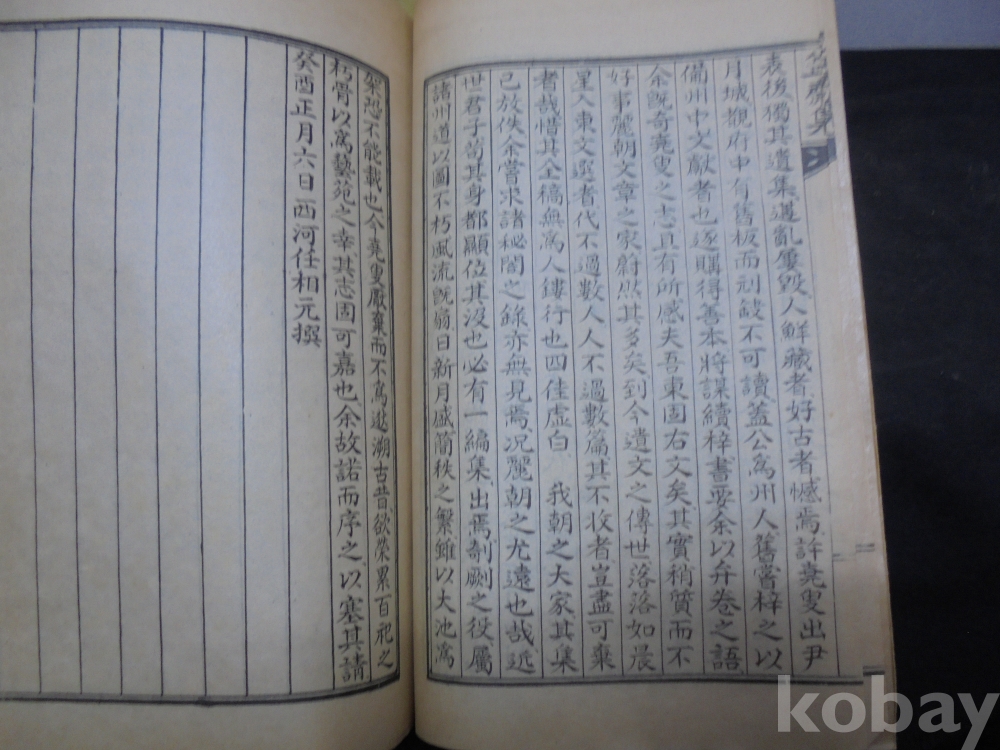 齋集
表後獨其遺集遭亂屢毀人鮮藏者好古者憾焉許堯叟出尹
月城觀府中有舊板而刓缺不可讀蓋公爲州人舊嘗梓之以
備州中文獻者也逐購得善本將謀續梓書要余以弁卷之語
余旣奇堯叟之志且有所感夫吾東固右文矣其實稍質而不
好事麗朝文章之家蔚然其多矣到今遺文之傳世落落如晨
星入東文選者代不過數人人不過數篇其不收者豈盡可棄
者哉惜其全稿無爲人鏤行也四佳虛白 我朝之大家其集
已放佚余嘗求諸秘閣之錄亦無見焉况麗朝之尤遠也哉近
世君子苟其身都顯位其沒也必有一編集出焉剞劂之役屬
諸州道以圖不朽風流旣弱日新月盛簡秩之繁雖以大池爲
架恐不能載也今堯叟厭棄而不爲邀溯古昔欲榮累百祀之
朽骨以爲藝苑之幸其志固可嘉也余故諾而序之以塞其請
癸酉正月六日西河任相元撰
kobay